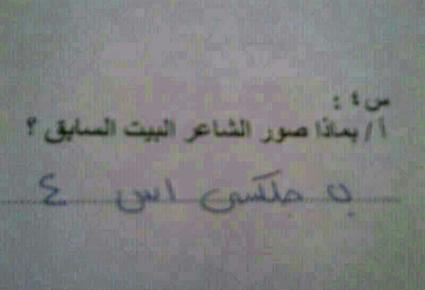 س٤ :
أ / بماذا صور الشاعر البيت السابق ؟
ب جلكسي اس ٤